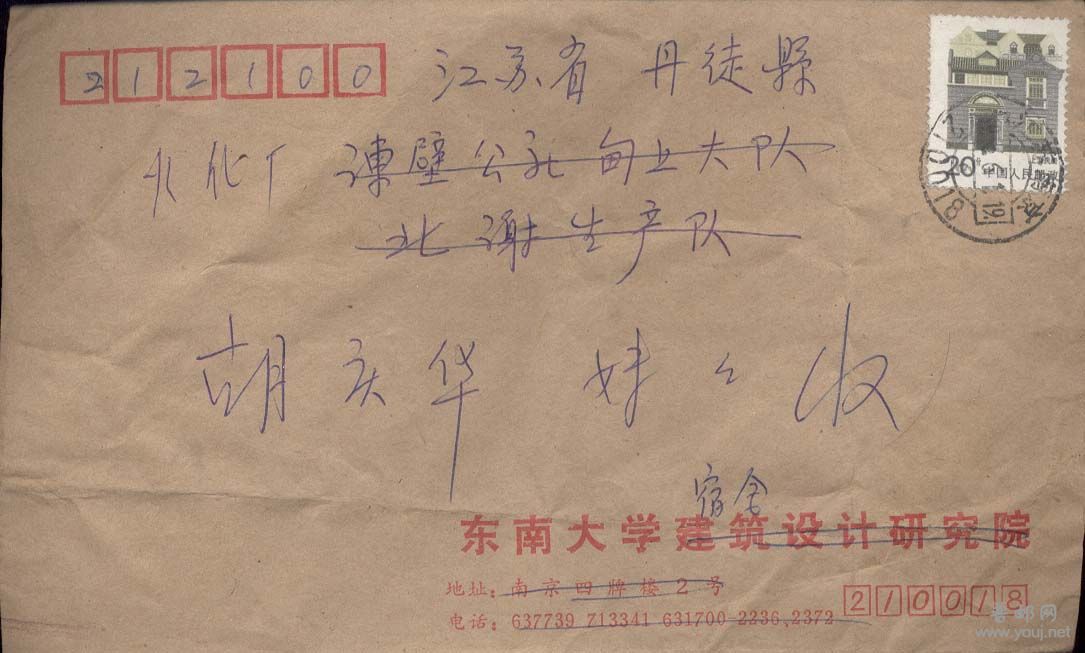 212100 江苏省 丹徒縣
化肥厂 谏壁公社 甸上大队
北谢生产队
胡庆华 妹々 收
宿舍
东南大学建筑设计研究院
地址：南京四牌楼2号
电话：637739 713341 631700 2236,2372
210018
20分 中国人民邮政
普邮网
www.youj.net